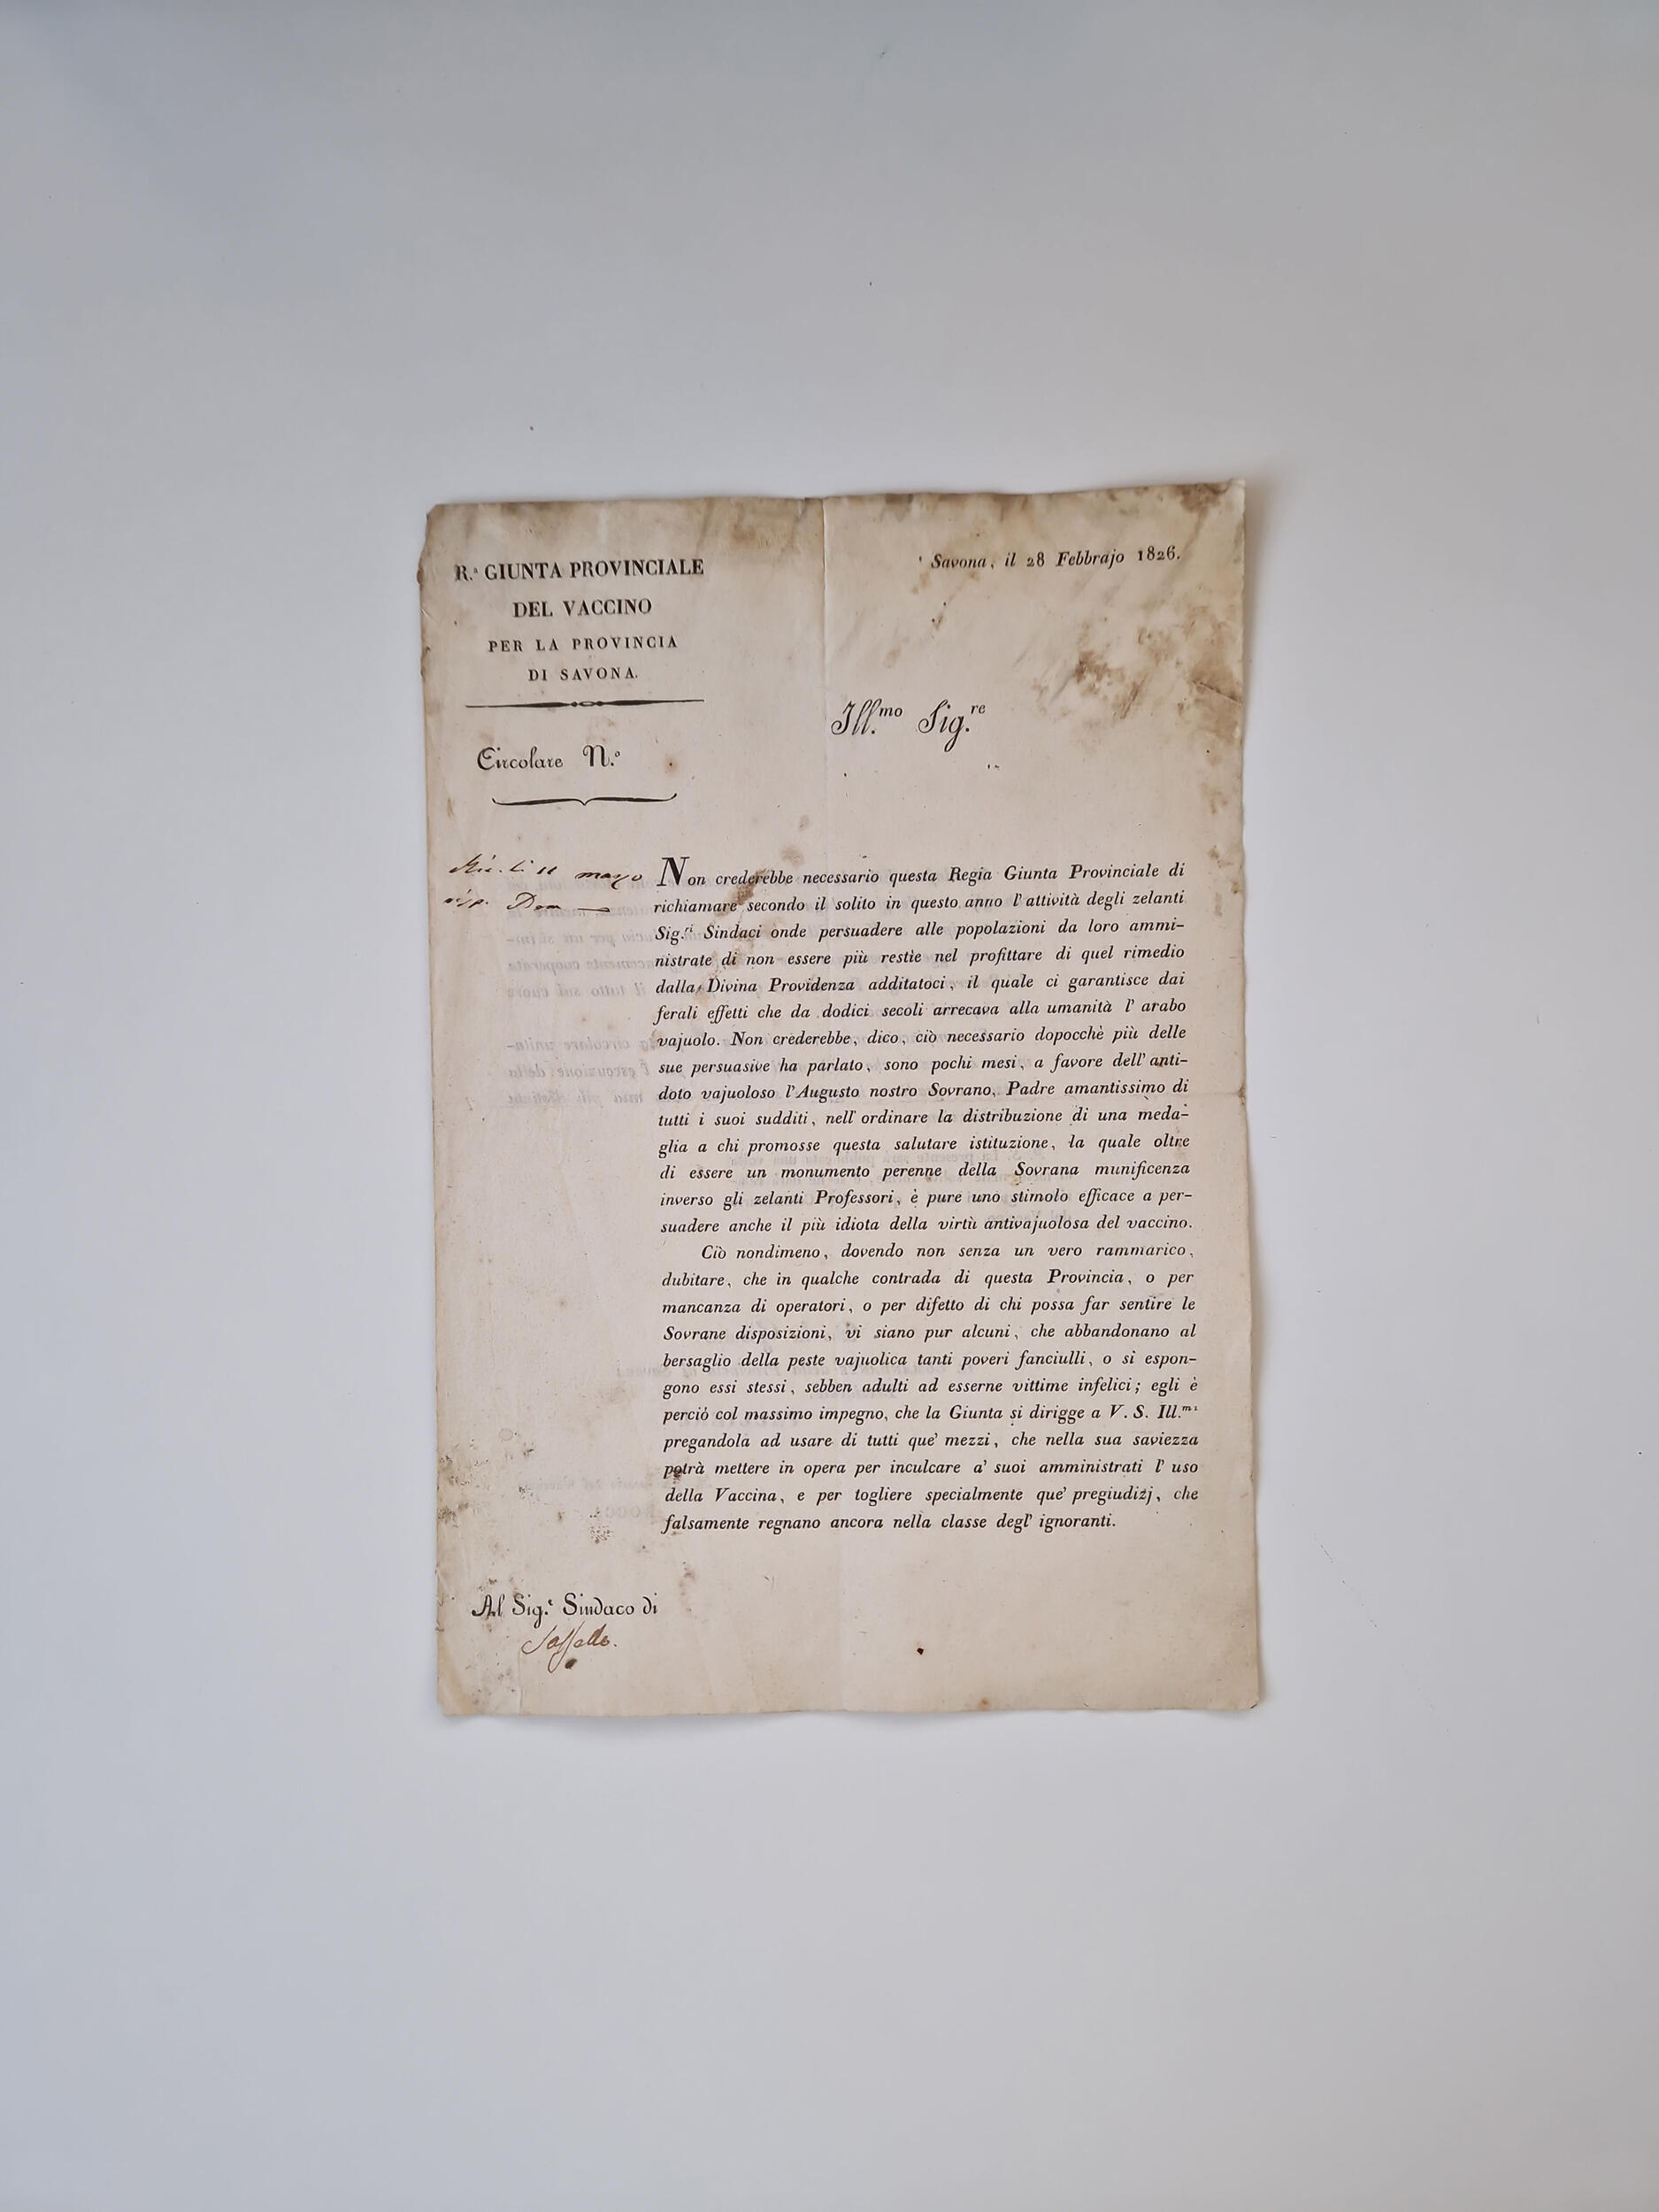 R.ª GIUNTA PROVINCIALE
DEL VACCINO
PER LA PROVINCIA
DI SAVONA.
Circolare N.º
Savona, il 28 Febbrajo 1826.
Ill.mo Sig.re
11 marzo
Non crederebbe necessario questa Regia Giunta Provinciale di
richiamare secondo il solito in questo anno l'attività degli zelanti
Sig.ri Sindaci onde persuadere alle popolazioni da loro ammi-
nistrate di non essere più restie nel profittare di quel rimedio
dalla Divina Providenza additatoci, il quale ci garantisce dai
ferali effetti che da dodici secoli arrecava alla umanità l' arabo
vajuolo. Non crederebbe, dico, ciò necessario dopocchè più delle
sue persuasive ha parlato, sono pochi mesi, a favore dell' anti-
doto vajuoloso l'Augusto nostro Sovrano, Padre amantissimo di
tutti i suoi sudditi, nell' ordinare la distribuzione di una meda-
glia a chi promosse questa salutare istituzione, la quale oltre
di essere un monumento perenne della Sovrana munificenza
inverso gli zelanti Professori, è pure uno stimolo efficace a per-
suadere anche il più idiota della virtù antivajuolosa del vaccino.
Ciò nondimeno, dovendo non senza un vero rammarico,
dubitare, che in qualche contrada di questa Provincia, o per
mancanza di operatori, o per difetto di chi possa far sentire le
Sovrane disposizioni, vi siano pur alcuni, che abbandonano al
bersaglio della peste vajuolica tanti poveri fanciulli, o si espon-
gono essi stessi, sebben adulti ad esserne vittime infelici; egli è
perciò col massimo impegno, che la Giunta si dirigge a V. S. Ill.ma
pregandola ad usare di tutti que' mezzi, che nella sua saviezza
potrà mettere in opera per inculcare a' suoi amministrati l' uso
della Vaccina, e per togliere specialmente que' pregiudizj, che
falsamente regnano ancora nella classe degl' ignoranti.
Al Sig.r Sindaco di
Sassello.